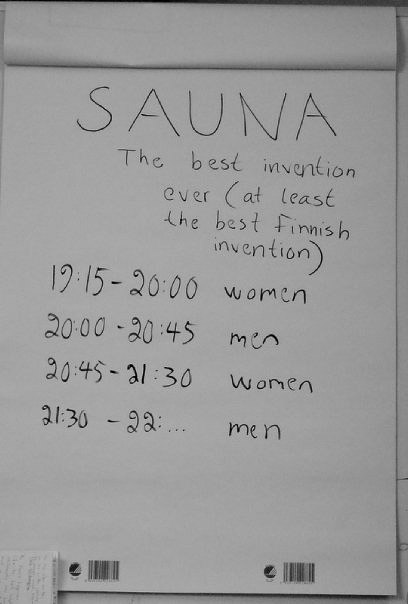 SAUNA
The best invention
ever (at least
the best Finnish
invention)
19:15 - 20:00 women
20:00 - 20:45 men
20:45 - 21:30 women
21:30 - 22:... men